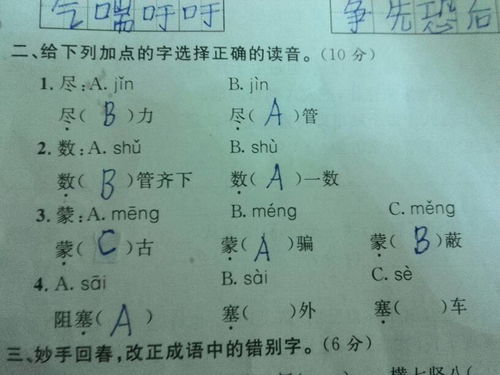 气喘吁吁 争先恐后
二、给下列加点的字选择正确的读音。(10分)
1. 尽:A. jǐn B. jìn
尽( B )力 尽( A )管
2. 数:A. shǔ B. shù
数( B )管齐下 数( A )一数
3. 蒙:A. mēng B. méng C. měng
蒙( C )古 蒙( A )骗 蒙( B )蔽
4. A. sāi B. sài C. sè
阻塞( A ) 塞( )外 塞( )车
三、妙手回春,改正成语中的错别字。(6分)
横七竖八(